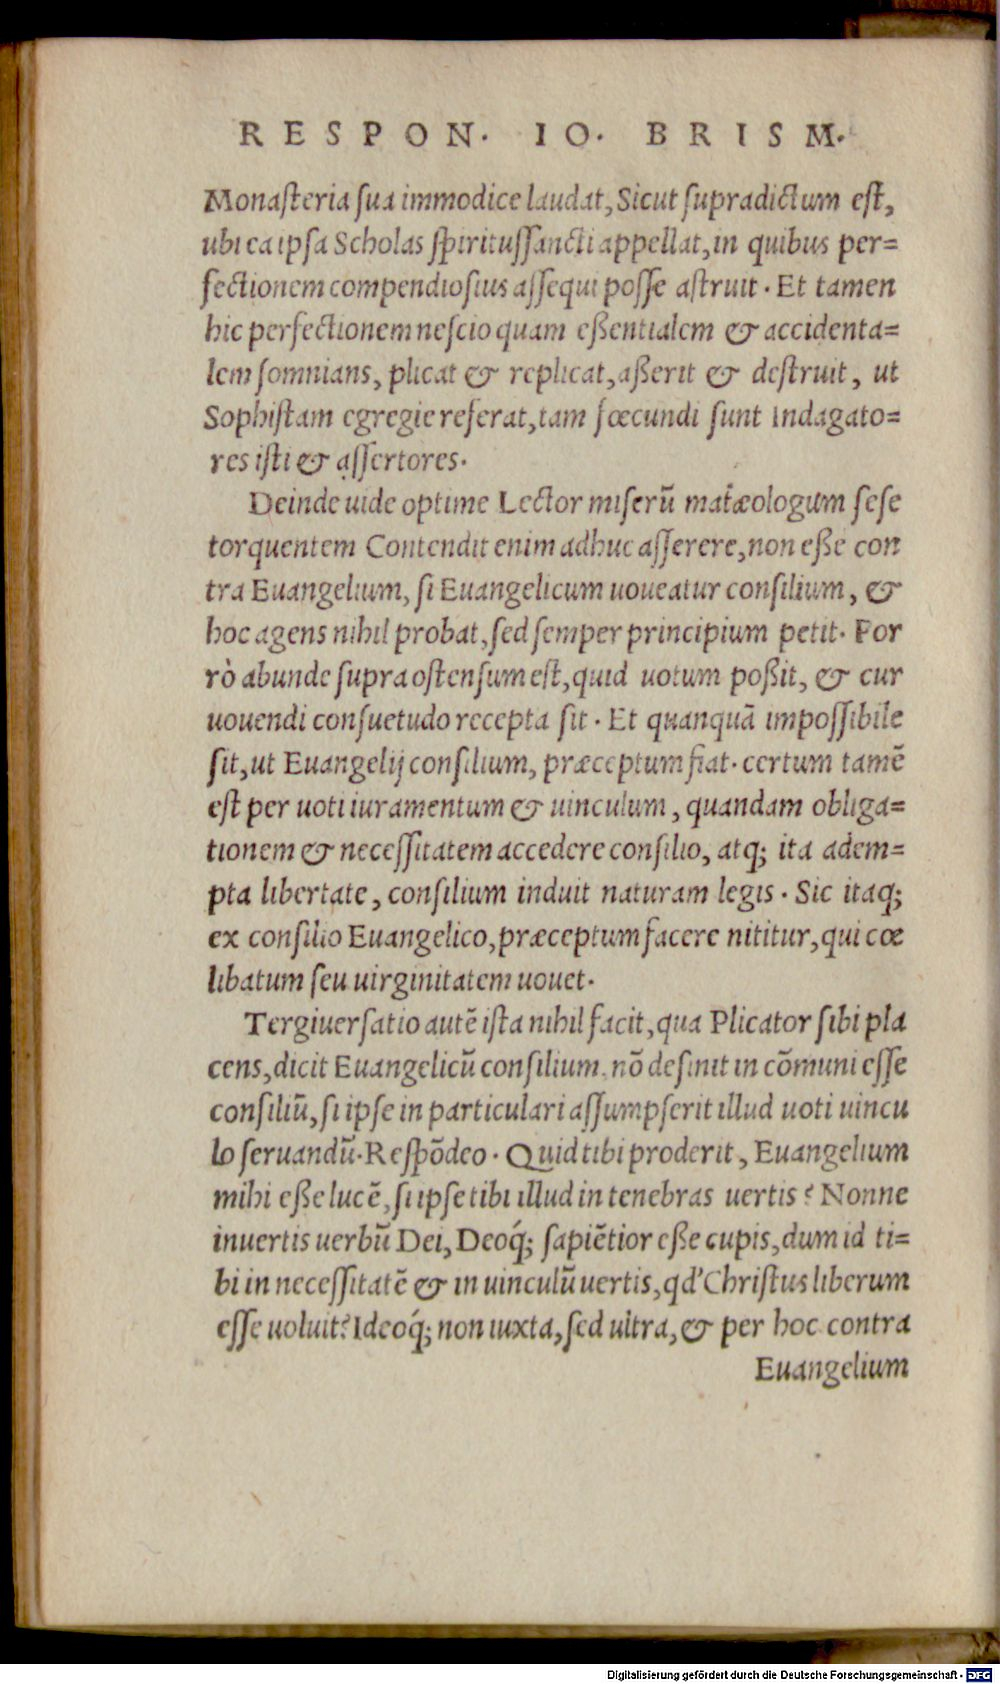 RESPON. IO. BRISM.
Monasteria sua immodice laudat, Sicut supradictum est,
ubi ea ipsa Scholas spiritussancti appellat, in quibus per=
fectionem compendiosius assequi posse astruit. Et tamen
hic perfectionem nescio quam eßentialem & accidenta=
lem somnians, plicat & replicat, aßerit & destruit, ut
Sophistam egregie referat, tam fœcundi sunt indagato=
res isti & assertores.
Deinde uide optime Lector miserũ matæologum sese
torquentem Contendit enim adhuc asserere, non eße con
tra Euangelium, si Euangelicum uoueatur consilium, &
hoc agens nihil probat, sed semper principium petit. Por
rò abunde supra ostensum est, quid uotum poßit, & cur
uouendi consuetudo recepta sit. Et quanquã impossibile
sit, ut Euangelij consilium, præceptum fiat. certum tamẽ
est per uoti iuramentum & uinculum, quandam obliga=
tionem & necessitatem accedere consilio, atq; ita adem=
pta libertate, consilium induit naturam legis. Sic itaq;
ex consilio Euangelico, præceptum facere nititur, qui cœ
libatum seu uirginitatem uouet.
Tergiuersatio autẽ ista nihil facit, qua Plicator sibi pla
cens, dicit Euangelicũ consilium. nõ desinit in cõmuni esse
consiliũ, si ipse in particulari assumpserit illud uoti uincu
lo seruandũ. Respõdeo. Quid tibi proderit, Euangelium
mihi eße lucẽ, si ipse tibi illud in tenebras uertis? Nonne
inuertis uerbũ Dei, Deoq́; sapiẽtior eße cupis, dum id ti=
bi in necessitatẽ & in uinculũ uertis, qd' Christus liberum
esse uoluit? Ideoq́; non iuxta, sed ultra, & per hoc contra
Euangelium
Digitalisierung gefördert durch die Deutsche Forschungsgemeinschaft - DFG